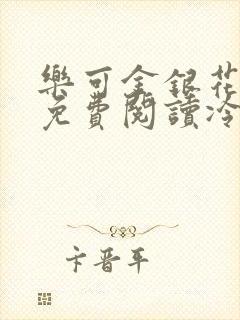 樂可金銀花
免費閱讀冷
卞晋平